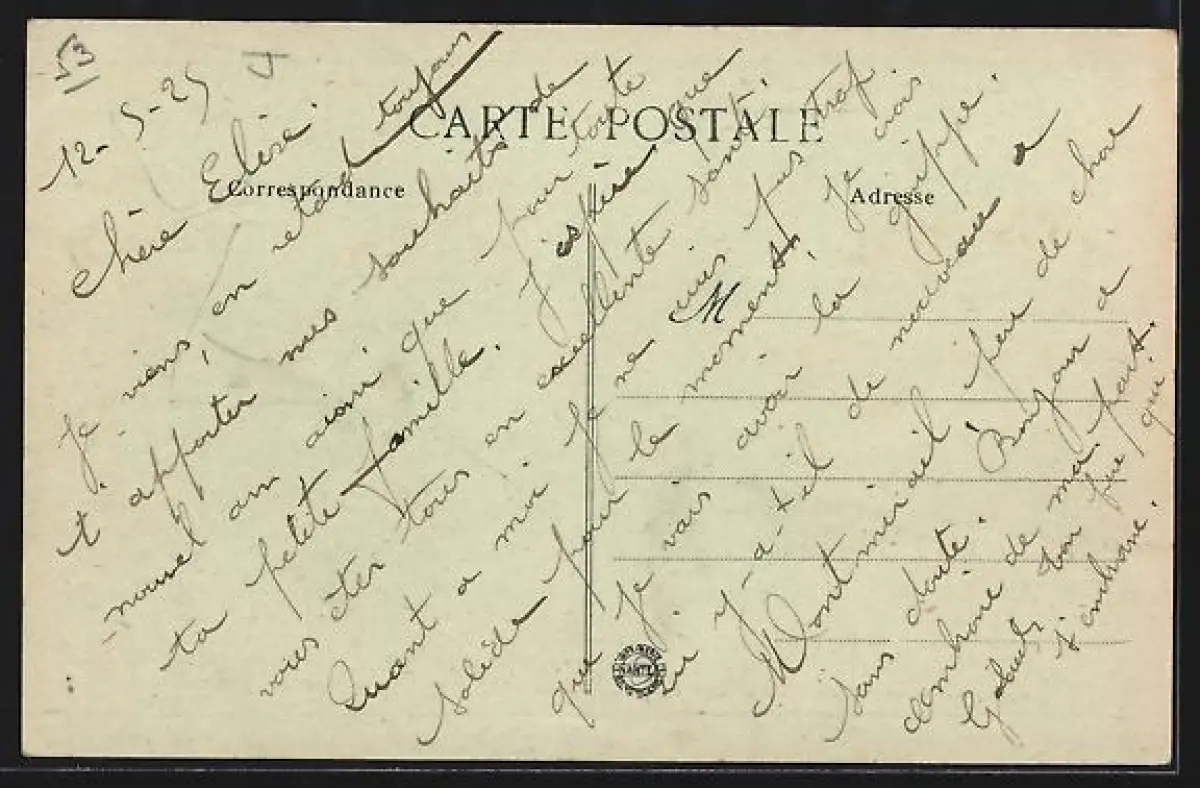 53
12-5-25
CARTE POSTALE
Correspondance
Adresse
M
Chère Elise.
Je viens, en retard toujours
t apporter mes souhaits de
nouvel an ainsi que pour toute
ta petite famille. J'espère que
vous êtes tous en excellente santé.
Quant a moi je ne suis pas trop
solide pour le moment. Je crois
que je vais avoir la grippe.
Y-a-t-il de nouveau a
Montmirail peu de chose
sans doute. Bonjour a
de ma part.
ton qui
t'embrasse.
NANTES